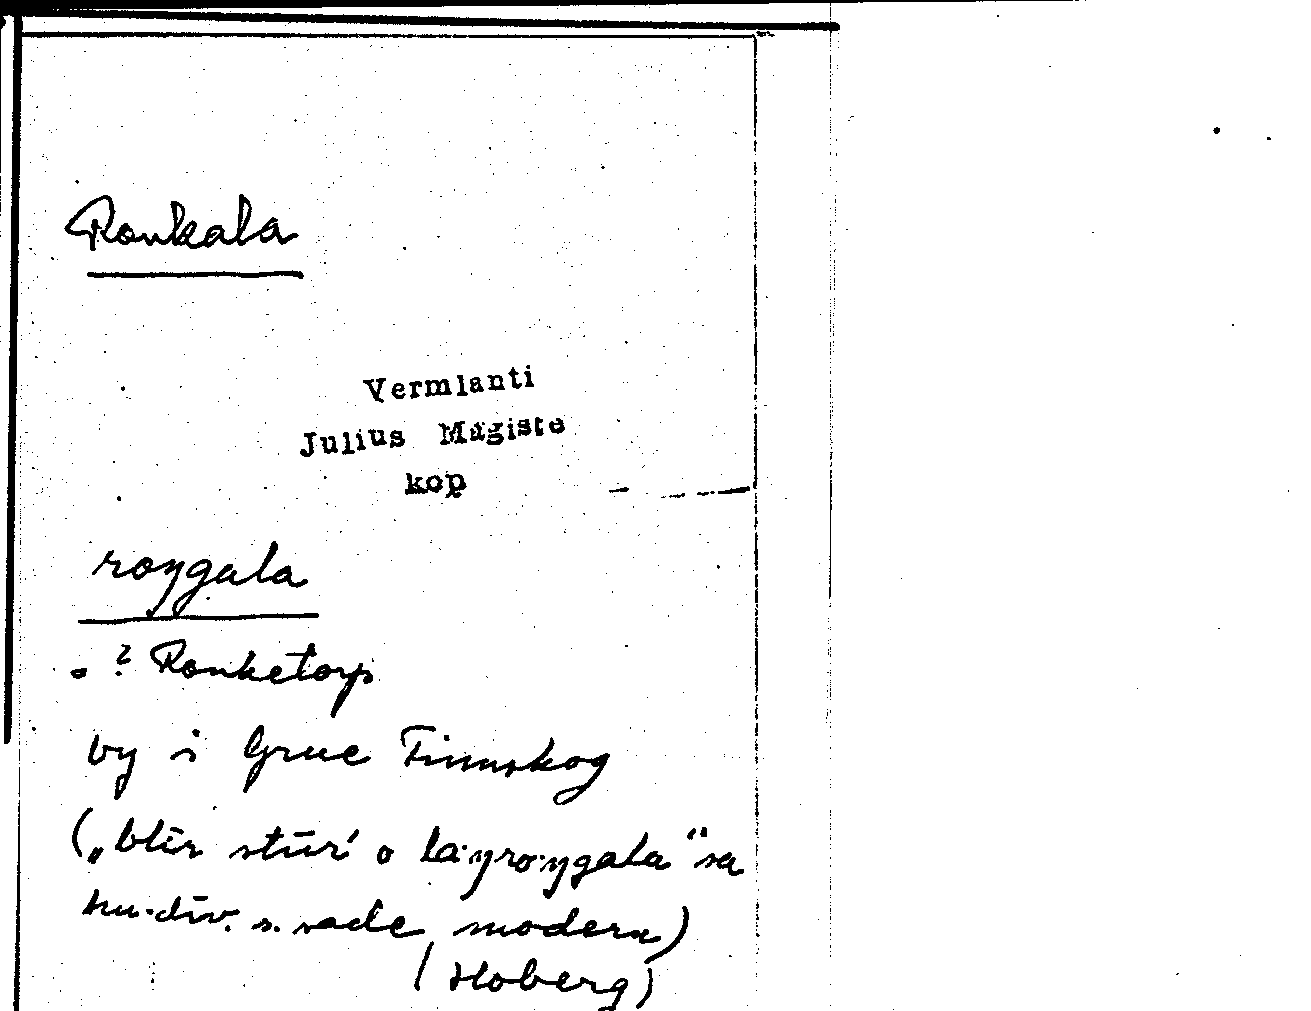 Ronkala
Vermlanti
Julius Mägiste
kop
roŋgala
? Ronketorp
by i Grue Finnskog
(„blir stūr' o la·ŋro·ŋgala" sa
modern)
(Hoberg)